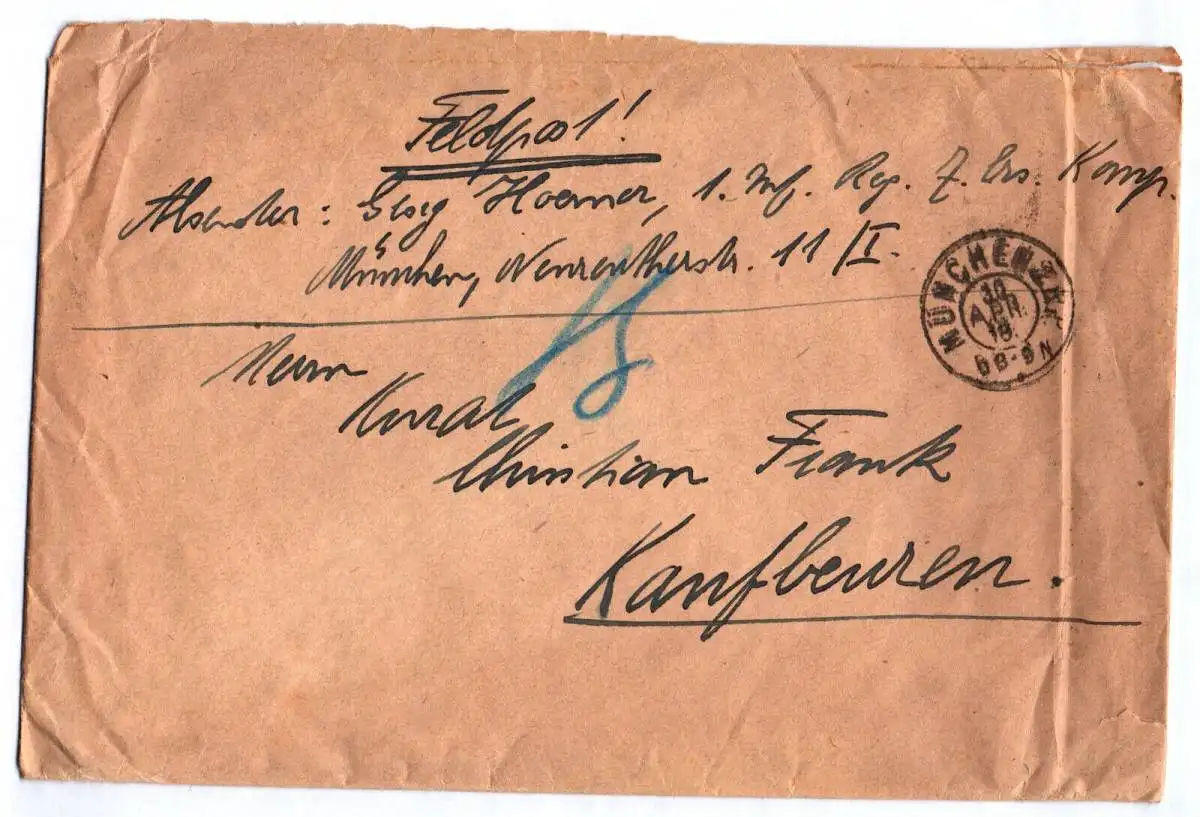 Feldpost!
Absender: Georg Hoerner, 1. Inf. Reg. 7. Ers. Komp.
München, Neureutherstr. 11/I.
MÜNCHEN
10
APR.
18
Herrn
Kurat
Christian Frank
Kaufbeuren.